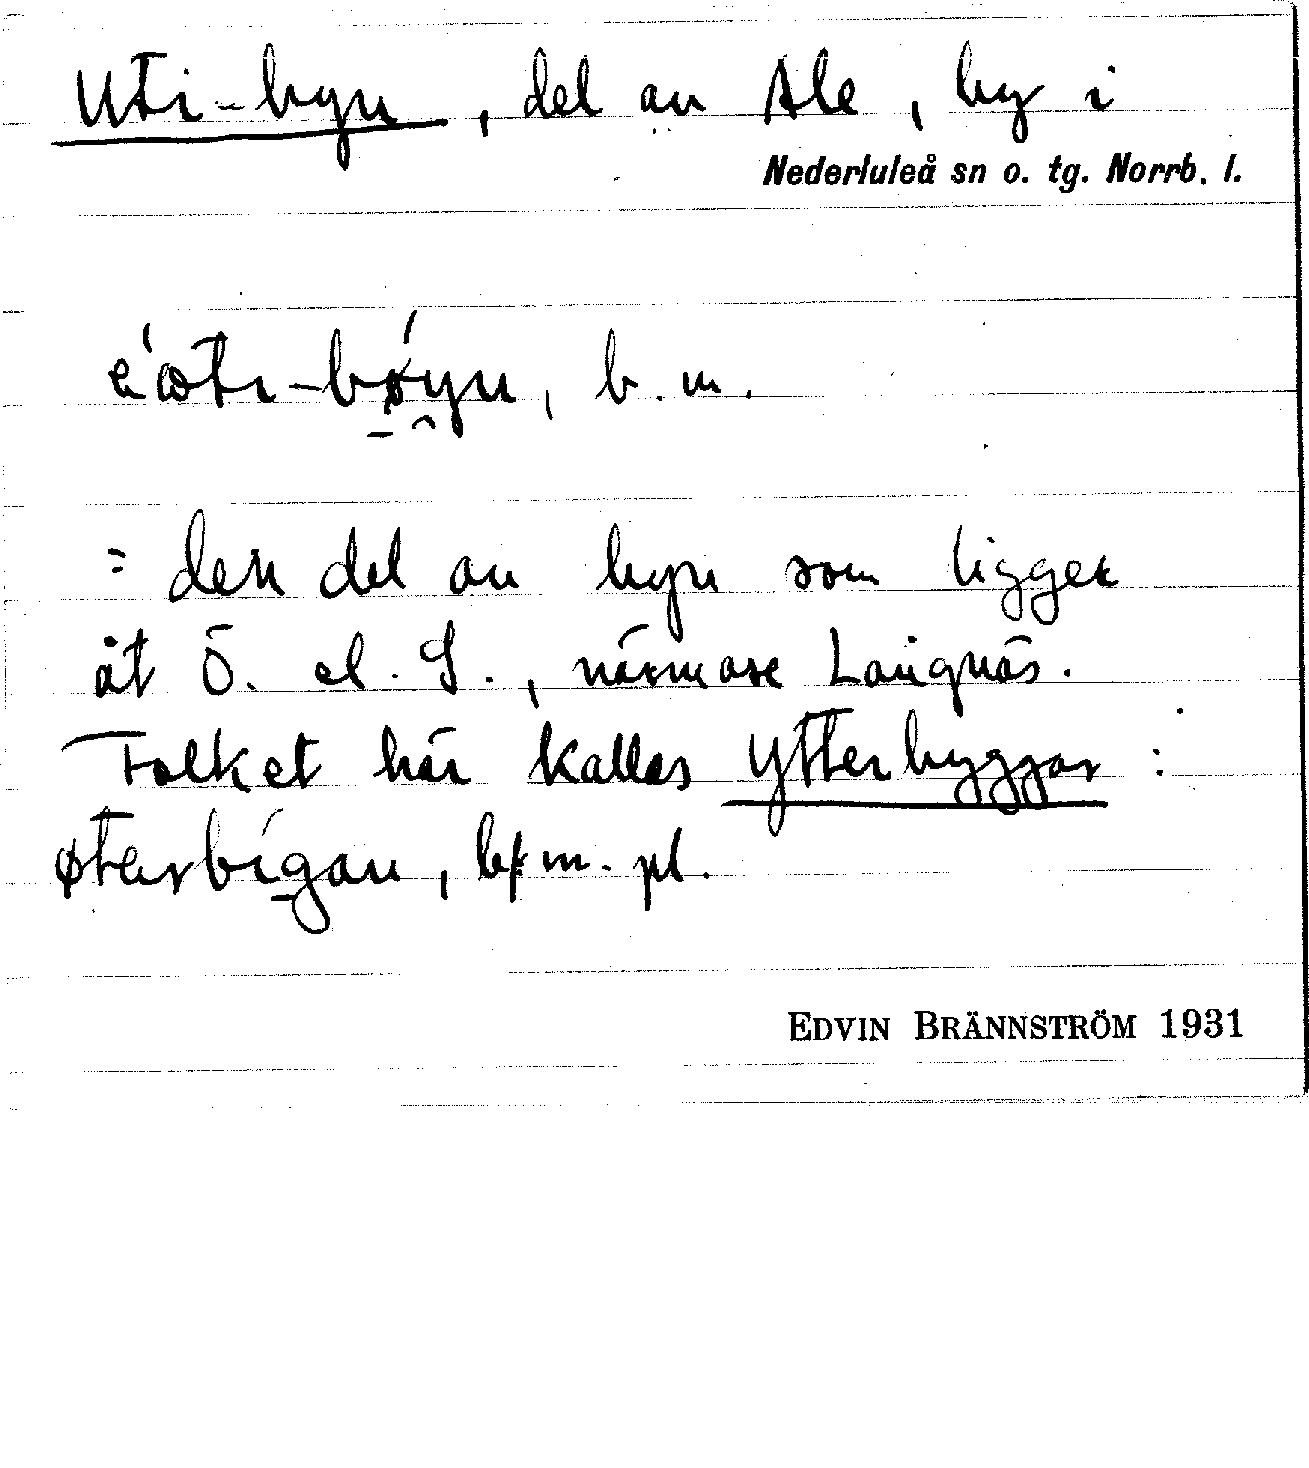 Uti-byn, del av Ale, by i
Nederluleå sn o. tg. Norrb. l.
b. m.
= den del av byn som ligger
åt Ö. el. S., närmare Långnäs.
Folket här kallas Ytterbyggar :
øterbígan, bf m. pl.
EDVIN BRÄNNSTRÖM 1931